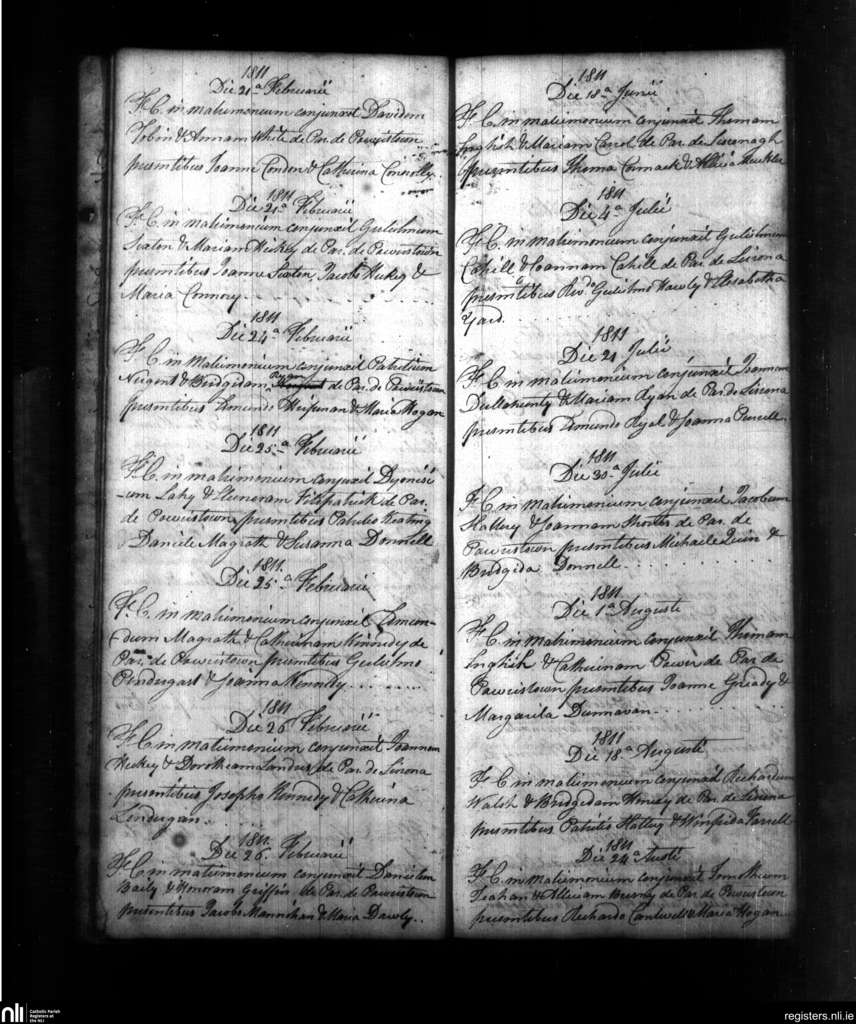 1811
Die 21a Februarii
F. C. in matrimonium conjunxit Davidem
Tobin & Annam White de Par. de Powerstown
presentibus Joanne Condon & Catherina Connolly
1811
Die 21a Februarii
F. C. in matrimonium conjunxit Gulielmum
Sexton & Mariam Hickey de Par. de Powerstown
presentibus Joanne Sexton, Jacobo Hickey &
Maria Connory
1811
Die 24a Februarii
F. C. in Matrimonium conjunxit Patritium
Nugent & Bridgedam Ryan de Par. de Powerstown
presentibus Edmundo Heffernan & Maria Hogan
1811
Die 25a Februarii
F. C. in matrimonium conjunxit Dyonisi
-um Lahy & Fitzpatrick de Par.
de Powerstown presentibus Patritio Keating
Daniele Magrath & Susanna Donnell
1811.
Die 25a Februarii
F. C. in matrimonium conjunxit Edmun-
-dum Magrath & Catherinam Kennedy de
Par. de Powerstown presentibus Gulielmo
Pendergast & Joanna Kennedy
1811
Die 26 Februarii
F. C. in matrimonium conjunxit Joannem
Hickey & Dorotheam Landers de Par. de Lisrona
presentibus Josepho Kennedy & Catherina
Londergan
1811.
Die 26. Februarii
F. C. in matrimonium conjunxit Danielem
Baily & Honoram Griffin de Par. de Powerstown
presentibus Jacobo Mannihan & Maria Dawly
1811
Die 18a Junii
F. C. in matrimonium conjunxit Thomam
English & Mariam Carrol de Par. de Lisronagh
presentibus Thoma Cormack &
1811
Die 4a Julii
F. C. in matrimonium conjunxit Gulielmum
Cahill & Joannam Cahill de Par de Lisrona
presentibus Rivdo Gulielmo Hawly & Elisabetha
Yard.
1811
Die 21 Julii
F. C. in matrimonium conjunxit Joannem
Dullahunty & Mariam Ryan de Par de Lisrona
presentibus Edmundo Ryal & Joanna Purcell
1811
Die 30a Julii
F. C. in matrimonium conjunxit Jacobum
Hallery & Joannam de Par. de
Powerstown presentibus Michaele Quin &
Bridgida Donnell
1811
Die 1a Augusti
F. C. in matrimonium conjunxit Thomam
English & Catherinam Power de Par de
Powerstown presentibus Joanne Gready &
Margarita Dunnavan
1811
Die 18a Augusti
F. C. in matrimonium conjunxit Richardum
Walsh & Bridgedam de Par. de Lisrona
presentibus Patritio Hallery & Winifrida Farrell
1811
Die 24a Austi
F. C. in matrimonium conjunxit Timotheum
& de Par de Powerstown
presentibus Richardo Cantwell & Maria Hogan
nli
Catholic Parish
Registers at
the NLI
registers.nli.ie